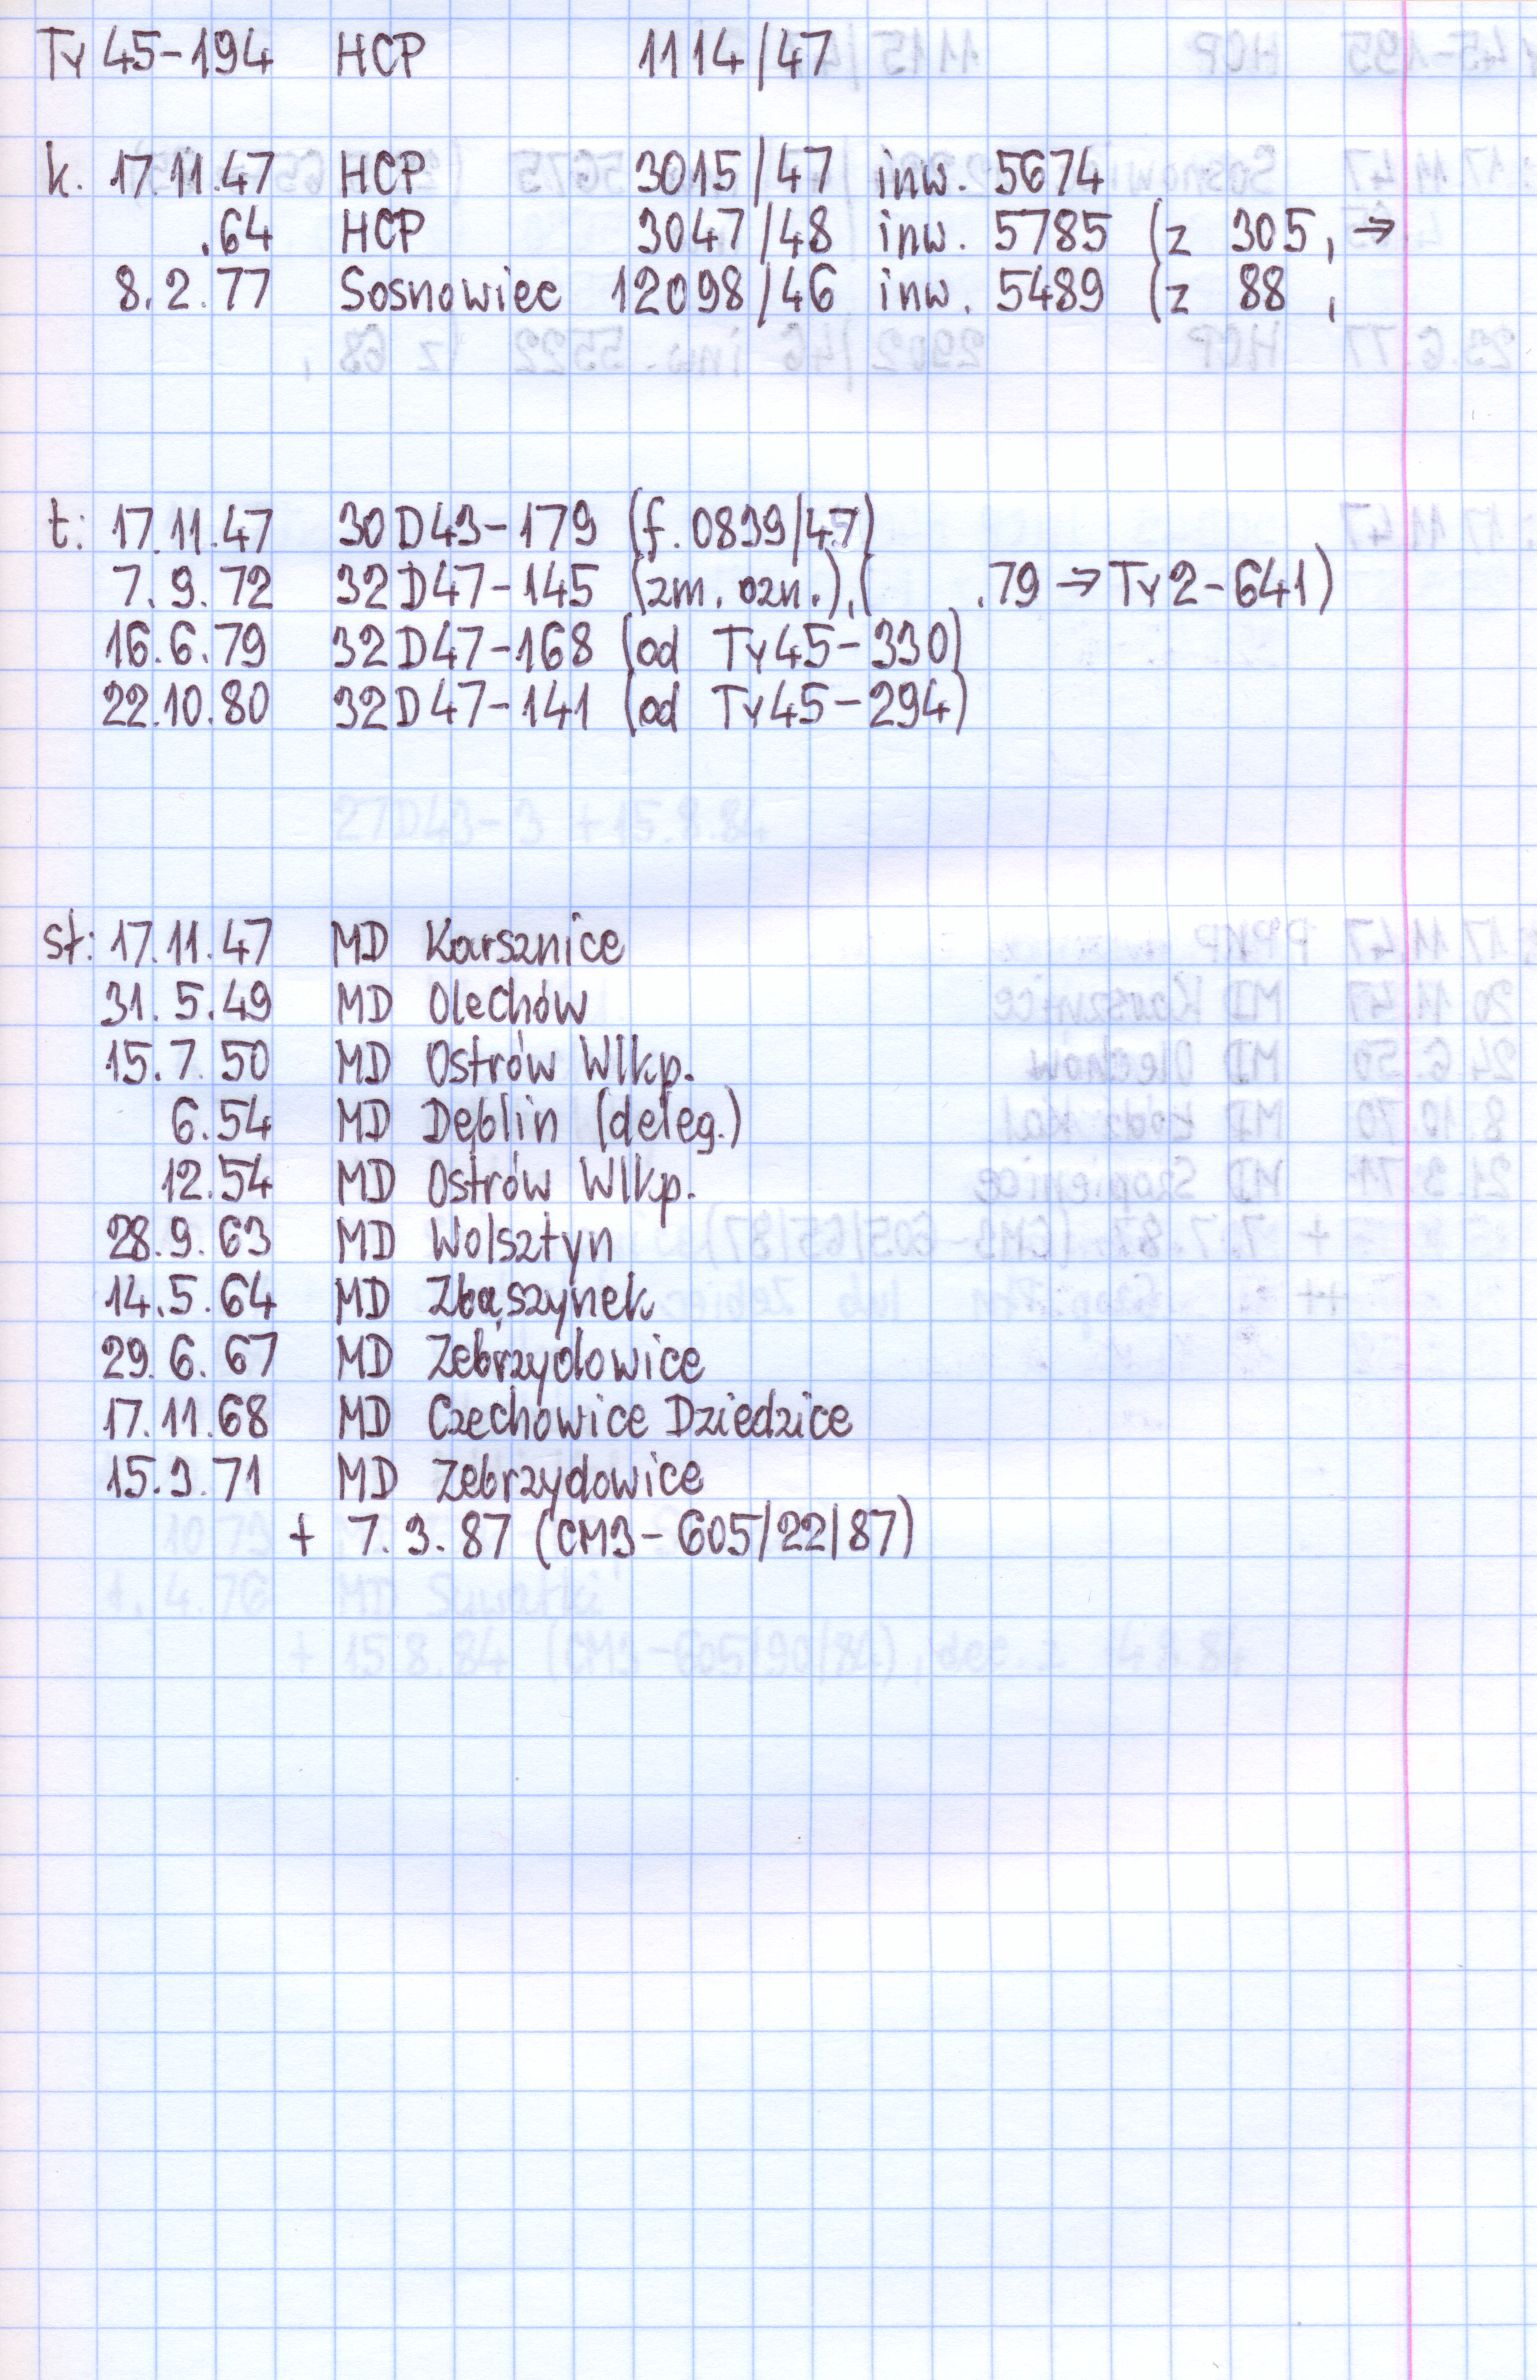 Ty 45-194 HCP 1114/47
k. 17.11.47 HCP 3015/47 inw. 5674
.64 HCP 3047/48 inw. 5785 (z 305, →
8.2.77 Sosnowiec 12098/46 inw. 5489 (z 88 ,
t: 17.11.47 30D43-179 (f.0839/47)
7.9.72 32D47-145 (zm. ozn.),( .79 → Ty2-641)
16.6.79 32D47-168 (od Ty45-330)
22.10.80 32D47-141 (od Ty45-294)
st: 17.11.47 MD Karsznice
31.5.49 MD Olechów
15.7.50 MD Ostrów Wlkp.
6.54 MD Dęblin (deleg.)
12.54 MD Ostrów Wlkp.
28.9.63 MD Wolsztyn
14.5.64 MD Zbąszynek
29.6.67 MD Zebrzydowice
17.11.68 MD Czechowice Dziedzice
15.3.71 MD Zebrzydowice
+ 7.3.87 (CM3-605/22/87)